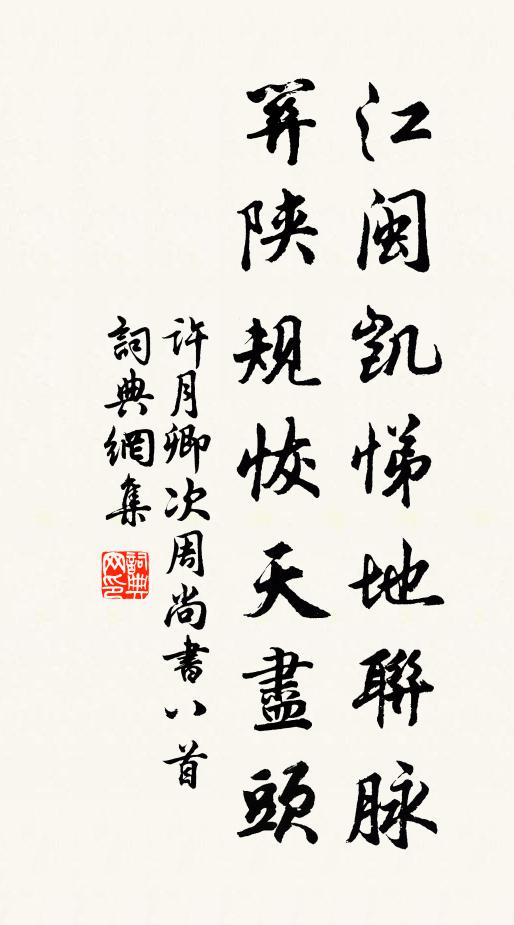 江閩凱悌地聯脉
陝規恢天盡頭
許月卿次周尚書八首
詞典網集
詞典
网印